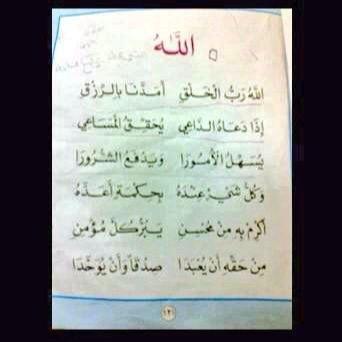 اللَّهُ
اللهُ رَبُّ الْخَلْقِ أَمَدَّنَا بِالرِّزْقِ
إِذَا دَعَاهُ الدَّاعِي يُحَقِّقُ الْمَسَاعِي
يُسَهِّلُ الْأُمُورَا وَيَدْفَعُ الشُّرُورَا
وَكُلُّ شَيْءٍ عِنْدَهُ بِحِكْمَةٍ أَعَدَّهُ
أَكْرِمْ بِهِ مِنْ مُحْسِنِ يَبَرُّ كُلَّ مُؤْمِنِ
مِنْ حَقِّهِ أَنْ يُعْبَدَا صِدْقًا وَأَنْ يُوَحَّدَا